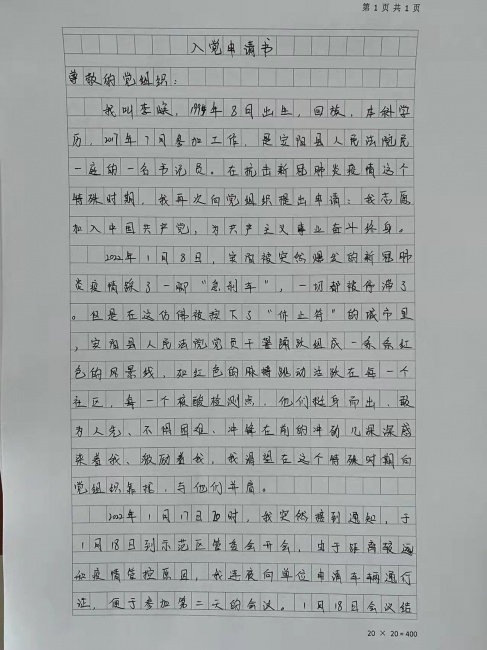 第 1 页 共 1 页
入党申请书
尊敬的党组织：
我叫李 ，1994年8月出生，回族，本科学
历，2017年7月参加工作，是安阳县人民法院民
一庭的一名书记员。在抗击新冠肺炎疫情这个
特殊时期，我再次向党组织提出申请：我志愿
加入中国共产党，为共产主义事业奋斗终身。
2022年1月8日，安阳被突然爆发的新冠肺
炎疫情踩了一脚“急刹车”，一切都被停滞了
。但是在这仿佛被按下了“休止符”的城市里
，安阳县人民法院党员干警踊跃组成一条条红
色的风景线，如红色的脉搏跳动活跃在每一个
社区，每一个核酸检测点，他们挺身而出，敢
为人先、不惧困难、冲锋在前的冲劲儿深深感
染着我、激励着我，我渴望在这个特殊时期向
党组织靠拢，与他们并肩。
2022年1月17日 时，我突然接到通知，于
1月18日到示范区管委会开会，由于距离较远
和疫情管控原因，我连夜向单位申请车辆通行
证，便于参加第二天的会议。1月18日会议结
20 × 20 = 400